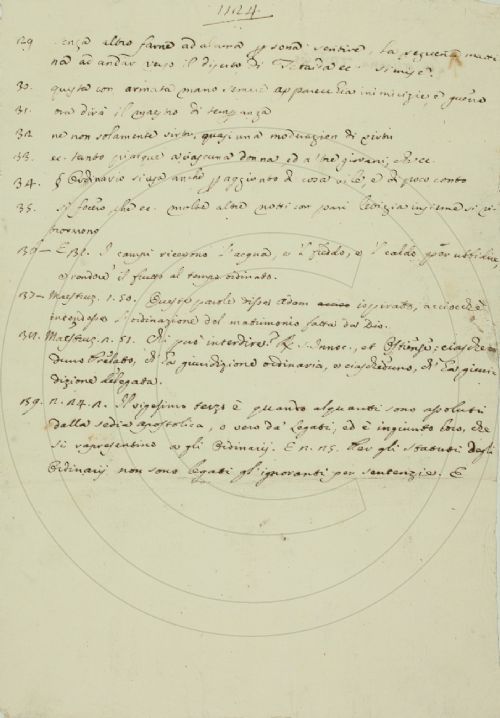 1124.
129 senza altro farne ad alcuna psona sentire, la seguente matti
na ad andar verso il diserto di Tebaida ec. si mise.
30. questa con armata mano semai apparecchia inimicizie e guerra
31. ora dirà il maestro di temperanza
32. ne non solamente virtu, quasi una moderazion di virtu
33. ec. tanto piacque a ciascuna donna, ed a' tre giovani, che ec.
34. § Ordinario si usa anche p aggiunto di cosa vile, e di poco conto
35. Si fecero, che ec. molte altre notti con pari letizia insieme si ri
trovorono
136 – E 131. I campi ricevono l'acqua, e 'l freddo, e 'l caldo per ubbidire
a rendere il frutto al tempo ordinato.
137 – Maestruz. 1. 50. Queste parole disse Adam inspirato, acciocchè
intendesse l'ordinazione del matrimonio fatta da Dio.
138. Maestruz. 2. 51. Chi può interdire? R. s. Innoc., et Ostiense, ciasche
duno Prelato, ch' ha giuridizione ordinaria, o ciascheduno, ch' ha giuri
dizione delegata.
139. R. 2. 4. 2. Il vigesimo terzo è quando alquanti sono assoluti
dalla sedia apostolica, o vero da' Legati, ed è ingiunto loro, che
si rapresentino a gli Ordinarij. E n. 25. Per gli statuti degli
Ordinarij non sono legati gl'ignoranti per sentenzie. E